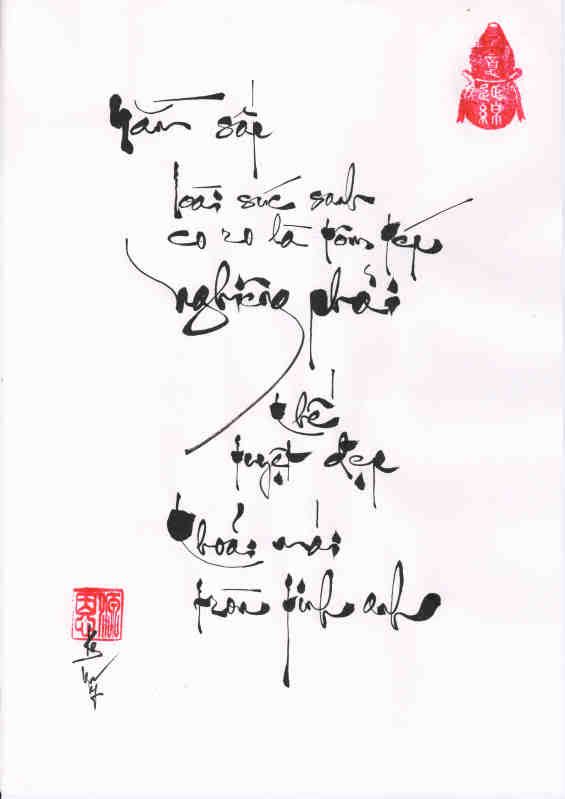 Nằm sấp
loài súc sanh
co ro là tôm tép
nghiêng phải
thế
tuyệt đẹp
thoải mái
tròn tinh anh
延綿